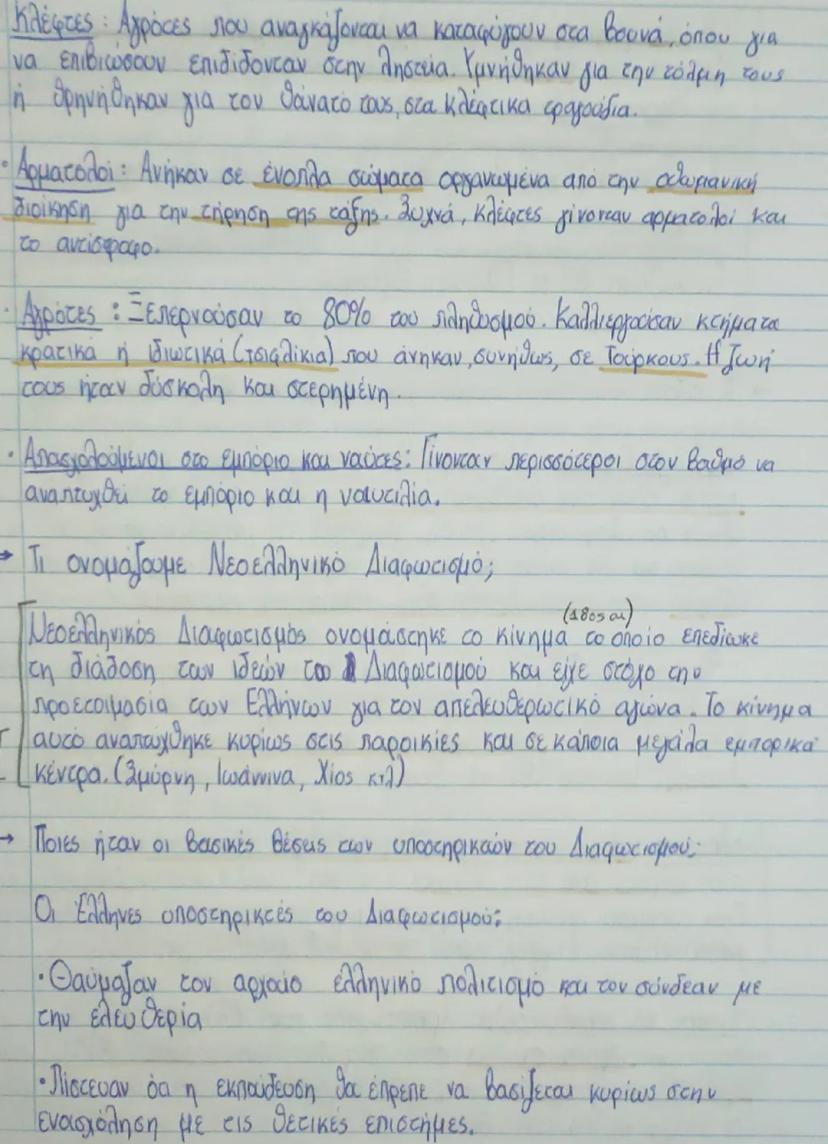 Κλέφτες: Αγρότες που αναγκάζονται να καταφύγουν στα βουνά, όπου για
να επιβιώσουν επιδίδονταν στην ληστεία. Υμνήθηκαν για την τόλμη τους
ή θρηνήθηκαν για τον θάνατό τους, στα κλέφτικα τραγούδια.
· Αρματολοί: Ανήκαν σε ένοπλα σώματα οργανωμένα από την οθωμανική
διοίκηση για την τήρηση της τάξης. Συχνά, κλέφτες γίνονταν αρματολοί και
το αντίστροφο.
· Αγρότες: Ξεπερνούσαν το 80% του πληθυσμού. Καλλιεργούσαν κτήματα
κρατικά ή ιδιωτικά (τσιφλίκια) που άνηκαν, συνήθως, σε Τούρκους. Η ζωή
τους ήταν δύσκολη και στερημένη.
· Απασχολούμενοι στο εμπόριο και ναύτες: Γίνονταν περισσότεροι στον βαθμό να
αναπτυχθεί το εμπόριο και η ναυτιλία.
→ Τι ονομάζουμε Νεοελληνικό Διαφωτισμό;
(18ος αι)
Νεοελληνικός Διαφωτισμός ονομάστηκε το κίνημα το οποίο επεδίωκε
τη διάδοση των ιδεών του Διαφωτισμού και είχε στόχο την
προετοιμασία των Ελλήνων για τον απελευθερωτικό αγώνα. Το κίνημα
αυτό αναπτύχθηκε κυρίως στις παροικίες και σε κάποια μεγάλα εμπορικά
κέντρα. (Σμύρνη, Ιωάννινα, Χίος κτλ)
→ Ποιες ήταν οι βασικές θέσεις των υποστηρικτών του Διαφωτισμού;
Οι Έλληνες υποστηρικτές του Διαφωτισμού:
· Θαύμαζαν τον αρχαίο ελληνικό πολιτισμό και τον σύνδεαν με
την ελευθερία
· Πίστευαν ότι η εκπαίδευση θα έπρεπε να βασίζεται κυρίως στην
ενασχόληση με τις θετικές επιστήμες.